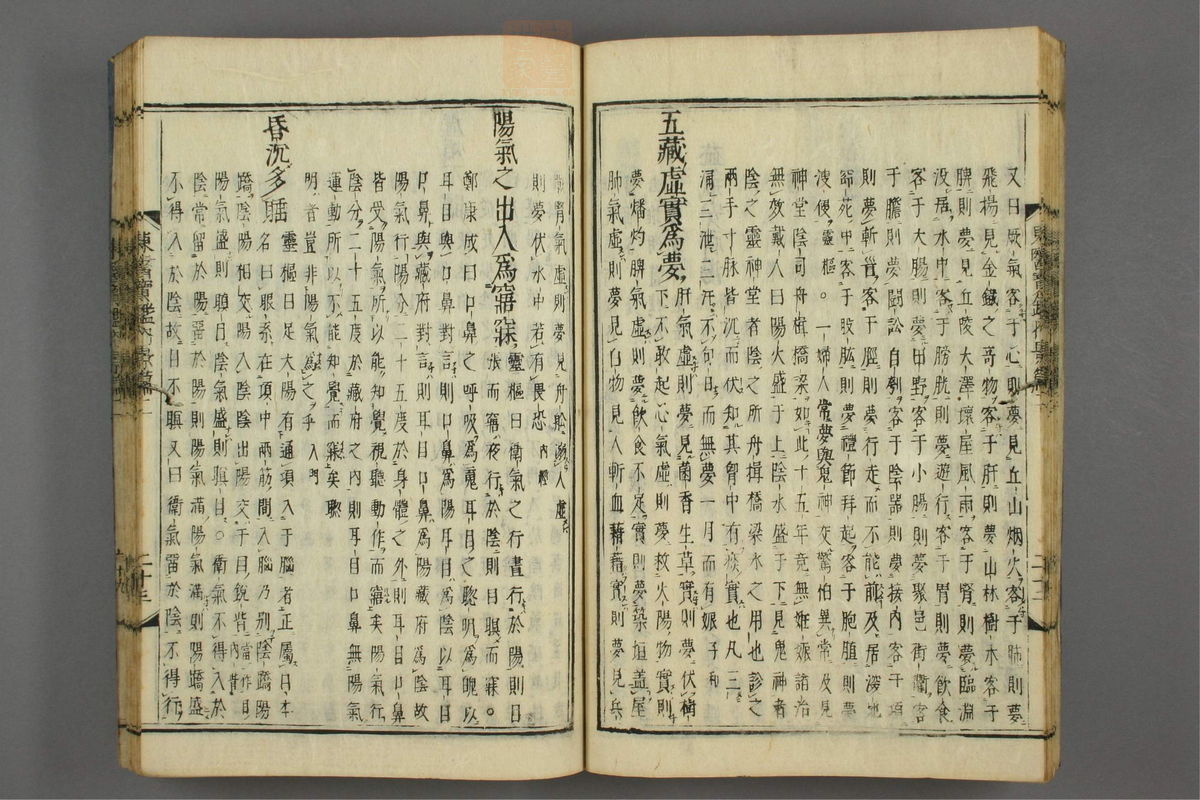 又曰厥氣客于心則夢見丘山烟火客于肺則夢
飛揚見金鐵之奇物客于肝則夢山林樹木客于
脾則夢見丘陵大澤壞屋風雨客于腎則夢臨淵
没居水中客于膀胱則夢遊行客于胃則夢飲食
客于大腸則夢田野客于小腸則夢聚邑街衢客
于膽則夢鬪訟自刳客于陰器則夢接内客于項
則夢斬首客于脛則夢行走而不能前及居深地
窌苑中客于股肱則夢禮節拜起客于胞䐈則夢
溲便靈樞。一婦人常夢與鬼神交驚怕異常及見
神堂陰司舟楫橋梁如此十五年竟無姙娠諸治
無效戴人曰陽火盛于上陰水盛于下見鬼神者
陰之靈神堂者陰之所舟揖橋梁水之用也診之
兩手寸脉皆沉而伏知其胷中有痰實也凡三
涌三泄三汗不旬日而無夢一月而有娠子和
五藏虛實爲夢肝氣虛則夢見菌香生草實則夢伏樹
下不敢起心氣虛則夢救火陽物實則
夢燔灼脾氣虛則夢飲食不足實則夢築垣盖屋
肺氣虛則夢見白物見人斬血藉藉實則夢見兵
戰腎氣虛則夢見舟舩溺人
則夢伏水中若有畏恐内經
陽氣之出入爲寤寐靈樞曰衛氣之行晝行於陽則目
張而寤夜行於陰則目瞑而寐。
鄭康成曰口鼻之呼吸爲魂耳目之聰明爲魄以
耳目與口鼻對言則口鼻爲陽耳目爲陰以耳目
口鼻與藏府對言則耳目口鼻爲陽藏府爲陰故
陽氣行陽分二十五度於身體之外則耳目口鼻
皆受陽氣所以能知覺視聽動作而寤矣陽氣行
陰分二十五度於藏府之内則耳目口鼻無陽氣
運動所以不能知覺而寐矣聰
明者豈非陽氣爲之乎入門
昏沉多睡靈樞曰足太陽有通項入于腦者正屬目本
名曰眼系在項中兩筋間入腦乃别陰蹻陽
蹻陰陽相交陽入陰陰出陽交于目銳眥當作内眥
陽氣盛則瞋目陰氣盛則瞑目。衛氣不得入於
陰常留於陽留於陽則陽氣滿陽氣滿則陽蹻盛
不得入於陰故目不瞑又曰衛氣留於陰不得行